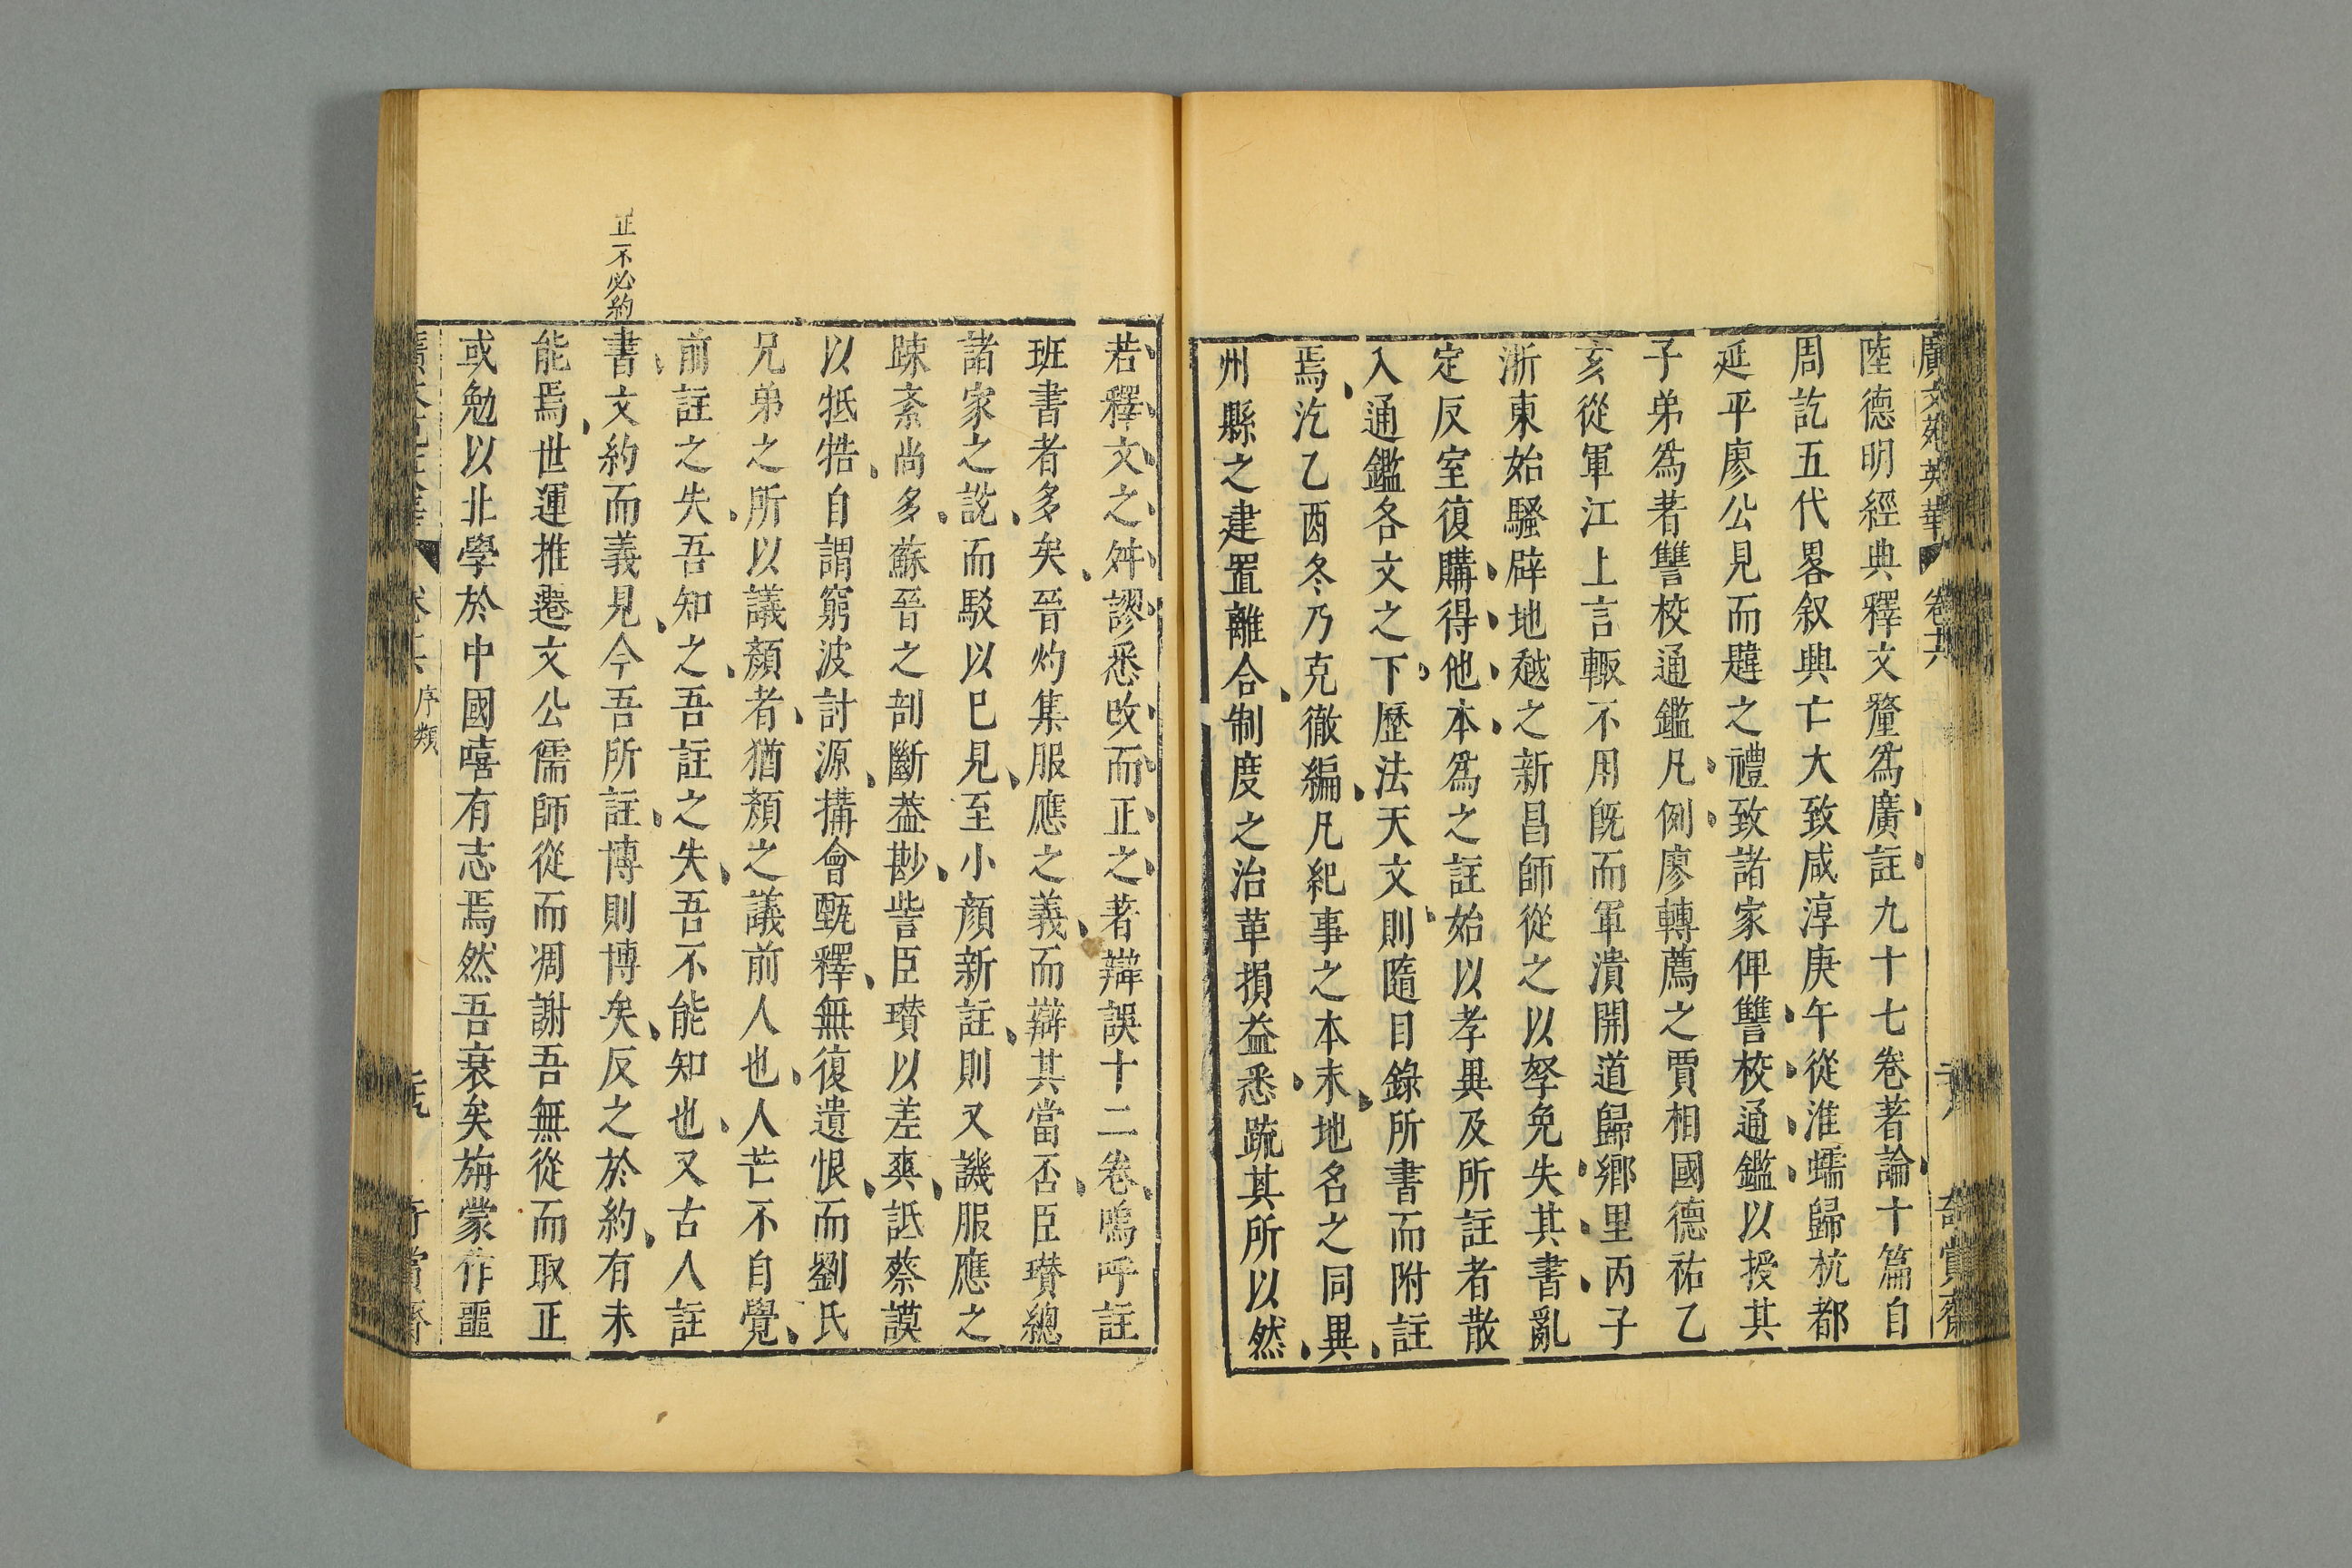 廣文苑英華 卷十六 奇賞齋
陸德明經典釋文釐爲廣註九十七卷著論十篇自
周訖五代畧叙興亡大致咸淳庚午從淮蠕歸杭都
延平廖公見而韙之禮致諸家俾讐校通鑑以授其
子弟爲著讐校通鑑凡例廖轉薦之賈相國德祐乙
亥從軍江上言輙不用旣而軍潰間道歸鄉里丙子
浙東始騷辟地越之新昌師從之以孥免失其書亂
定反室復購得他本爲之註始以考異及所註者散
入通鑑各文之下歷法天文則隨目錄所書而附註
焉汔乙酉冬乃克徹編凡紀事之本末地名之同異
州縣之建置離合制度之治革損益悉疏其所以然
若釋文之舛謬悉改而正之著辯誤十二卷嗚呼註
班書者多矣晉灼集服應之義而辯其當否臣瓚總
諸家之說而駁以巳見至小顏新註則又譏服應之
踈紊尚多蘇晉之剖斷葢尠訾臣瓚以差爽詆蔡謨
以牴牾自謂窮波討源搆會甄釋無復遺恨而劉氏
兄弟之所以議顏者猶顏之議前人也人芒不自覺
前註之失吾知之吾註之失吾不能知也又古人註
書文約而義見今吾所註博則博矣反之於約有未
能焉世運推遷文公儒師從而凋謝吾無從而取正
或勉以北學於中國嘻有志焉然吾衰矣旃蒙作噩
正不必約
序類